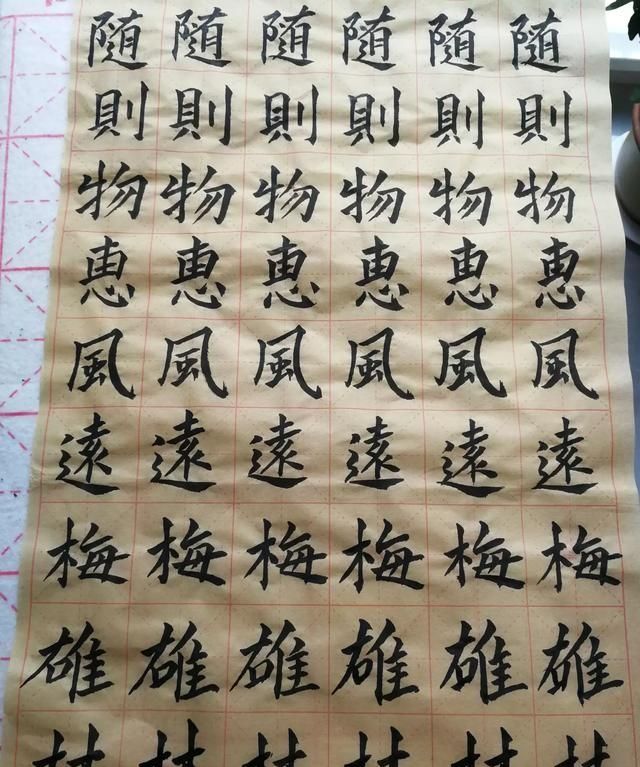 随随随随随随
則則則則則則
物物物物物物
恵恵恵恵恵恵
風風風風風風
遠遠遠遠遠遠
梅梅梅梅梅梅
雄雄雄雄雄雄